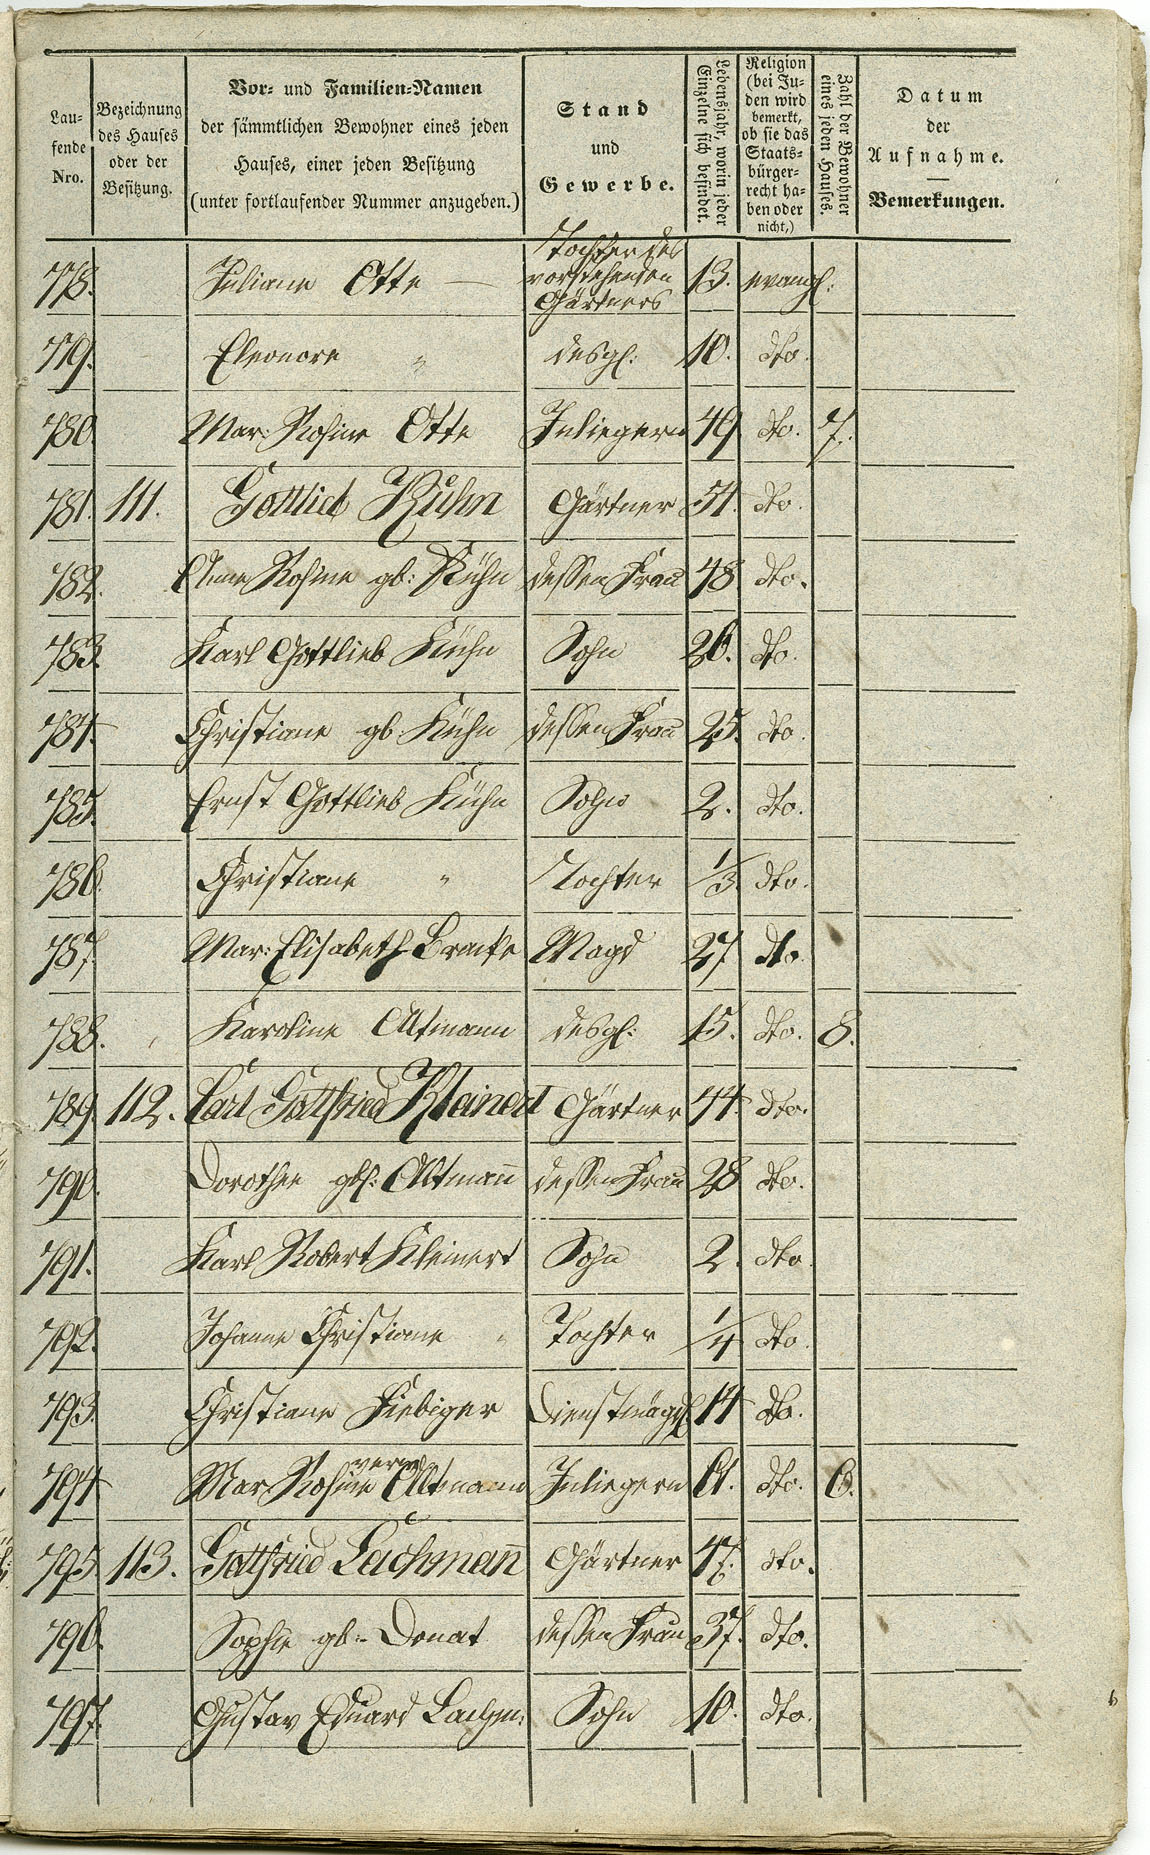 Laufende Nro.
Bezeichnung des Hauses oder der Besitzung.
Vor- und Familien-Namen der sämmtlichen Bewohner eines jeden Hauses, einer jeden Besitzung (unter fortlaufender Nummer anzugeben.)
Stand und Gewerbe.
Lebensjahr, worin jeder Einzelne sich befindet.
Religion (bei Juden wird bemerkt, ob sie das Staatsbürgerrecht haben oder nicht,)
Zahl der Bewohner eines jeden Hauses.
Datum der Aufnahme.
Bemerkungen.
778. Juliane Otte — Tochter des vorstehenden Gärtners 13. evangl:
779. Eleonore " desgl: 10. dto.
780. Mar: Rosine Otte Inliegern 49 dto. 7.
781. 111. Gottlieb Kühn Gärtner 51. dto.
782. Anne Rosine gb: Kühn dessen Frau 48 dto.
783. Karl Gottlieb Kühn Sohn 26. dto.
784. Christiane gb. Kühn dessen Frau 25. dto.
785. Ernst Gottlieb Kühn Sohn 2. dto.
786. Christiane " Tochter 1/3 dto.
787. Mar: Elisabeth Magd 27 dto.
788. Karoline Altmann desgl: 15. dto. 8.
789. 112. Carl Gottfried Kleinert Gärtner 44. dto.
790. Dorothee Altmañ dessen Frau 28 dto.
791. Karl Robert Kleinert Sohn 2. dto
792. Johanne Christiane " Tochter 1/4 dto.
793. Christiane Fiebiger Dienstmagd 14 dto.
794 Mar Rosine verw Altmann Inliegern 61. dto. 6.
795 113. Gottfried Lachmañ Gärtner 47. dto.
796. Sophie gb:- Donat dessen Frau 37. dto.
797. Gustav Eduard Lachm: Sohn 10. dto.